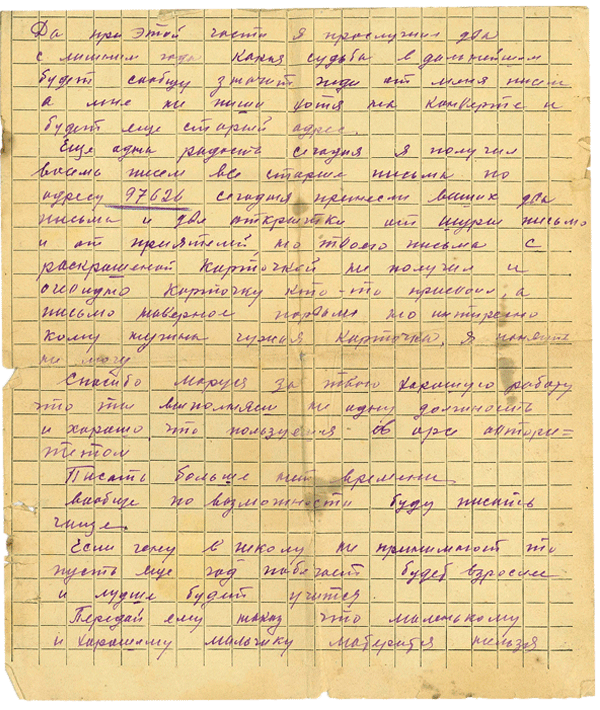 Да при этой части я прослужил два
с лишним года какая судьба в дальнейшем
будет сообщу значит жди от меня писем
а мне не пиши хотя на конверте и
будет еще старый адрес.
Еще одна радость сегодня я получил
восемь писем все старые письма по
адресу 97626 сегодня принесли ваших два
письма и две открытки от Шуры письмо
и от приятелей, но твоего письма с
раскрашеной карточкой не получил и
очевидно карточку кто-то присвоил, а
письмо наверное порвали но интересно
кому нужна чужая карточка, я понять
не могу
Спасибо Маруся за твою харашую работу
что ты выполняеш не одну должность
и харашо что пользуешся авторе=
тетом
Писать больше нет времени
вообще по возможности буду писать
чаще.
Если гену в школу не принимают то
пусть еще год побегает будет взрослее
и лучше будет учится.
Передай ему наказ что маленькому
и харашому мальчику матерится нельзя